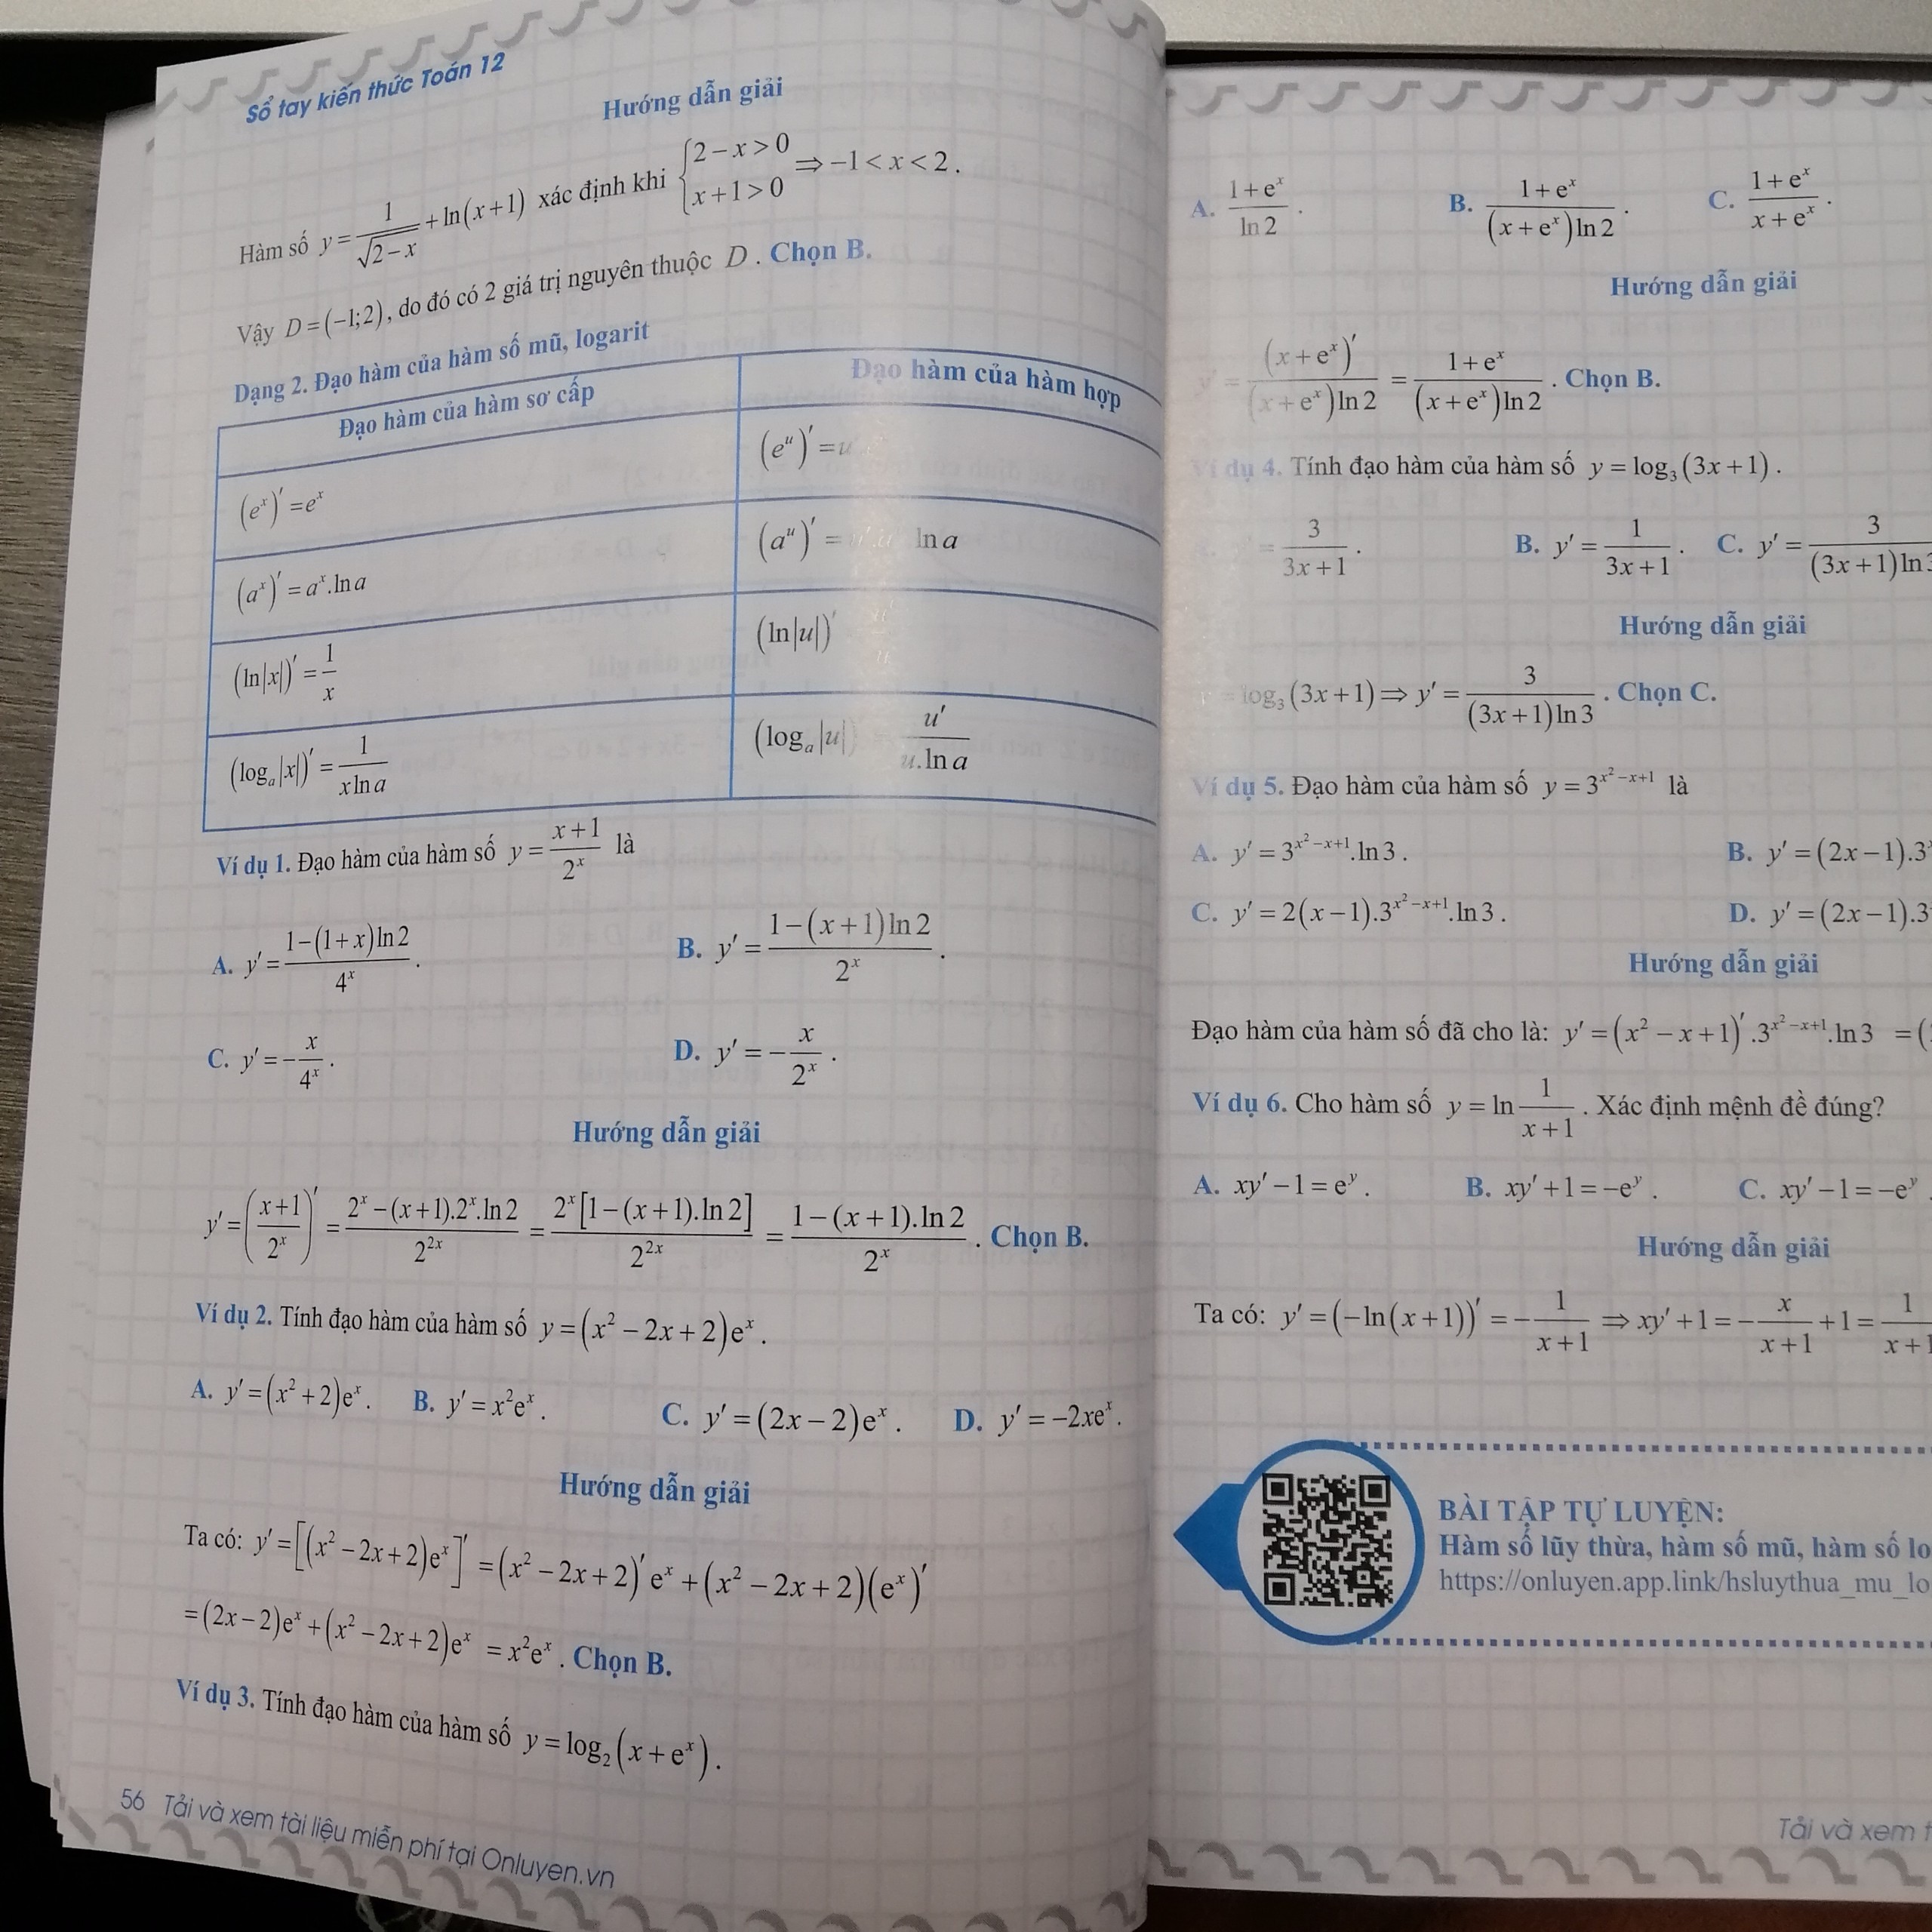 Sổ tay kiến thức Toán 12
Hướng dẫn giải
Hàm số y = 1/√(2−x) + ln(x+1) xác định khi {2−x>0; x+1>0 ⇒ −1<x<2.
Vậy D=(−1;2), do đó có 2 giá trị nguyên thuộc D. Chọn B.
Dạng 2. Đạo hàm của hàm số mũ, logarit
Đạo hàm của hàm sơ cấp Đạo hàm của hàm hợp
(eˣ)′ = eˣ (eᵘ)′ = u
(aˣ)′ = aˣ.ln a (aᵘ)′ = ln a
(ln|x|)′ = 1/x (ln|u|)′
(logₐ|x|)′ = 1/(x ln a) (logₐ|u|) u′/(u.ln a)
Ví dụ 1. Đạo hàm của hàm số y = (x+1)/2ˣ là
A. y′ = (1−(1+x)ln2)/4ˣ. B. y′ = (1−(x+1)ln2)/2ˣ.
C. y′ = −x/4ˣ. D. y′ = −x/2ˣ.
Hướng dẫn giải
y′ = ((x+1)/2ˣ)′ = (2ˣ−(x+1).2ˣ.ln2)/2²ˣ = (2ˣ[1−(x+1).ln2])/2²ˣ = (1−(x+1).ln2)/2ˣ. Chọn B.
Ví dụ 2. Tính đạo hàm của hàm số y = (x²−2x+2)eˣ.
A. y′ = (x²+2)eˣ. B. y′ = x²eˣ. C. y′ = (2x−2)eˣ. D. y′ = −2xeˣ.
Hướng dẫn giải
Ta có: y′ = [(x²−2x+2)eˣ]′ = (x²−2x+2)′eˣ + (x²−2x+2)(eˣ)′
= (2x−2)eˣ + (x²−2x+2)eˣ = x²eˣ. Chọn B.
Ví dụ 3. Tính đạo hàm của hàm số y = log₂(x+eˣ).
56 Tải và xem tài liệu miễn phí tại Onluyen.vn
A. (1+eˣ)/ln2. B. (1+eˣ)/((x+eˣ)ln2). C. (1+eˣ)/(x+eˣ).
Hướng dẫn giải
y′ = (x+eˣ)′/((x+eˣ)ln2) = (1+eˣ)/((x+eˣ)ln2). Chọn B.
Ví dụ 4. Tính đạo hàm của hàm số y = log₃(3x+1).
A. y′ = 3/(3x+1). B. y′ = 1/(3x+1). C. y′ = 3/((3x+1)ln3
Hướng dẫn giải
y = log₃(3x+1) ⇒ y′ = 3/((3x+1)ln3). Chọn C.
Ví dụ 5. Đạo hàm của hàm số y = 3^(x²−x+1) là
A. y′ = 3^(x²−x+1).ln3. B. y′ = (2x−1).3
C. y′ = 2(x−1).3^(x²−x+1).ln3. D. y′ = (2x−1).3
Hướng dẫn giải
Đạo hàm của hàm số đã cho là: y′ = (x²−x+1)′.3^(x²−x+1).ln3 = (
Ví dụ 6. Cho hàm số y = ln 1/(x+1). Xác định mệnh đề đúng?
A. xy′−1 = eʸ. B. xy′+1 = −eʸ. C. xy′−1 = −eʸ
Hướng dẫn giải
Ta có: y′ = (−ln(x+1))′ = −1/(x+1) ⇒ xy′+1 = −x/(x+1)+1 = 1/(x+1
BÀI TẬP TỰ LUYỆN:
Hàm số lũy thừa, hàm số mũ, hàm số lo
https://onluyen.app.link/hsluythua_mu_lo
Tải và xem t